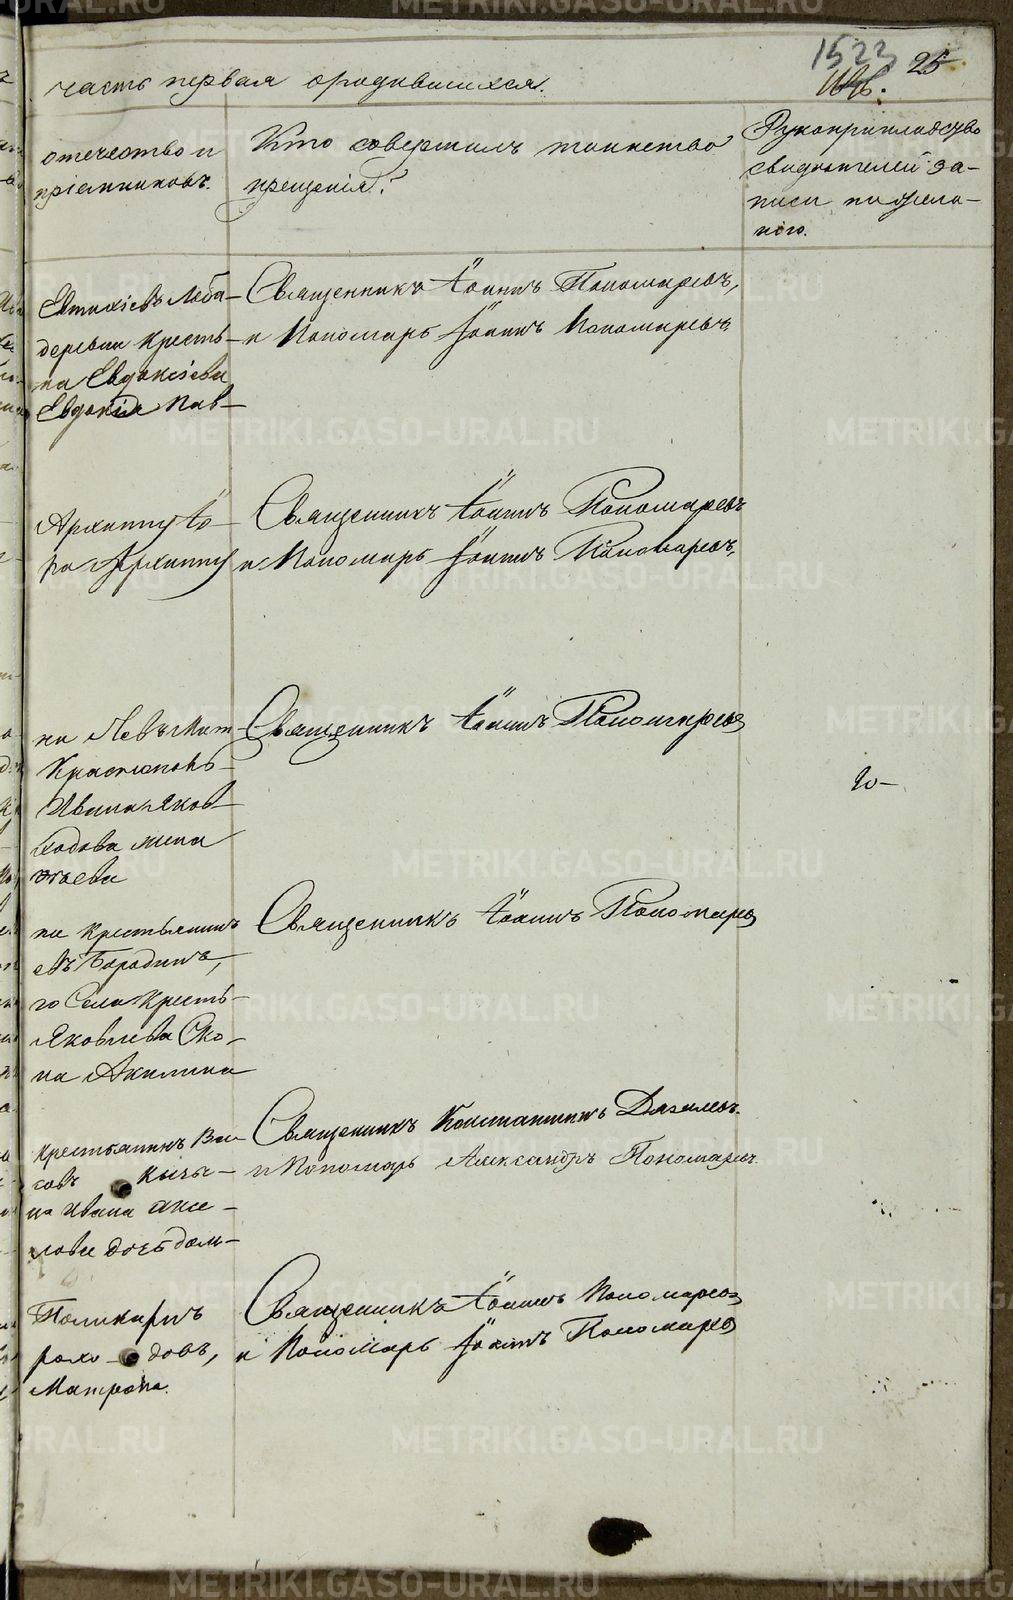 1523 25
часть первая о родившихся.
отечество и
пріемниковъ.
Кто совершалъ таинство
крещенія?
Рукоприкладство
свидѣтелей за-
писи по жела-
нію.
Евтихіевъ Лоба-
деревни кресть-
на Евдокіева
Евдокія Пав-
Священникъ Іоаннъ Пономаревъ,
и Пономарь Іоаннъ Пономаревъ
Архиппу Іо-
ра Архиппу
Священникъ Іоаннъ Пономаревъ
и Пономарь Іоаннъ Пономаревъ.
на
Иванъ Яков-
ходова жена
Священникъ Іоаннъ Пономаревъ
на крестьянинъ
евъ Бородинъ,
го Села кресть-
Яковлева Ско-
на Акилина
Священникъ Іоаннъ Пономаревъ
крестьянинъ Ва-
совъ
на Ивана
лова дочь
Священникъ Константинъ
и Пономарь Александръ Пономаревъ.
Поликарпъ
рохо-довъ,
Матрона.
Священникъ Іоаннъ Пономаревъ
и Пономарь Іоаннъ Пономаревъ
METRIKI.GASO-URAL.RU